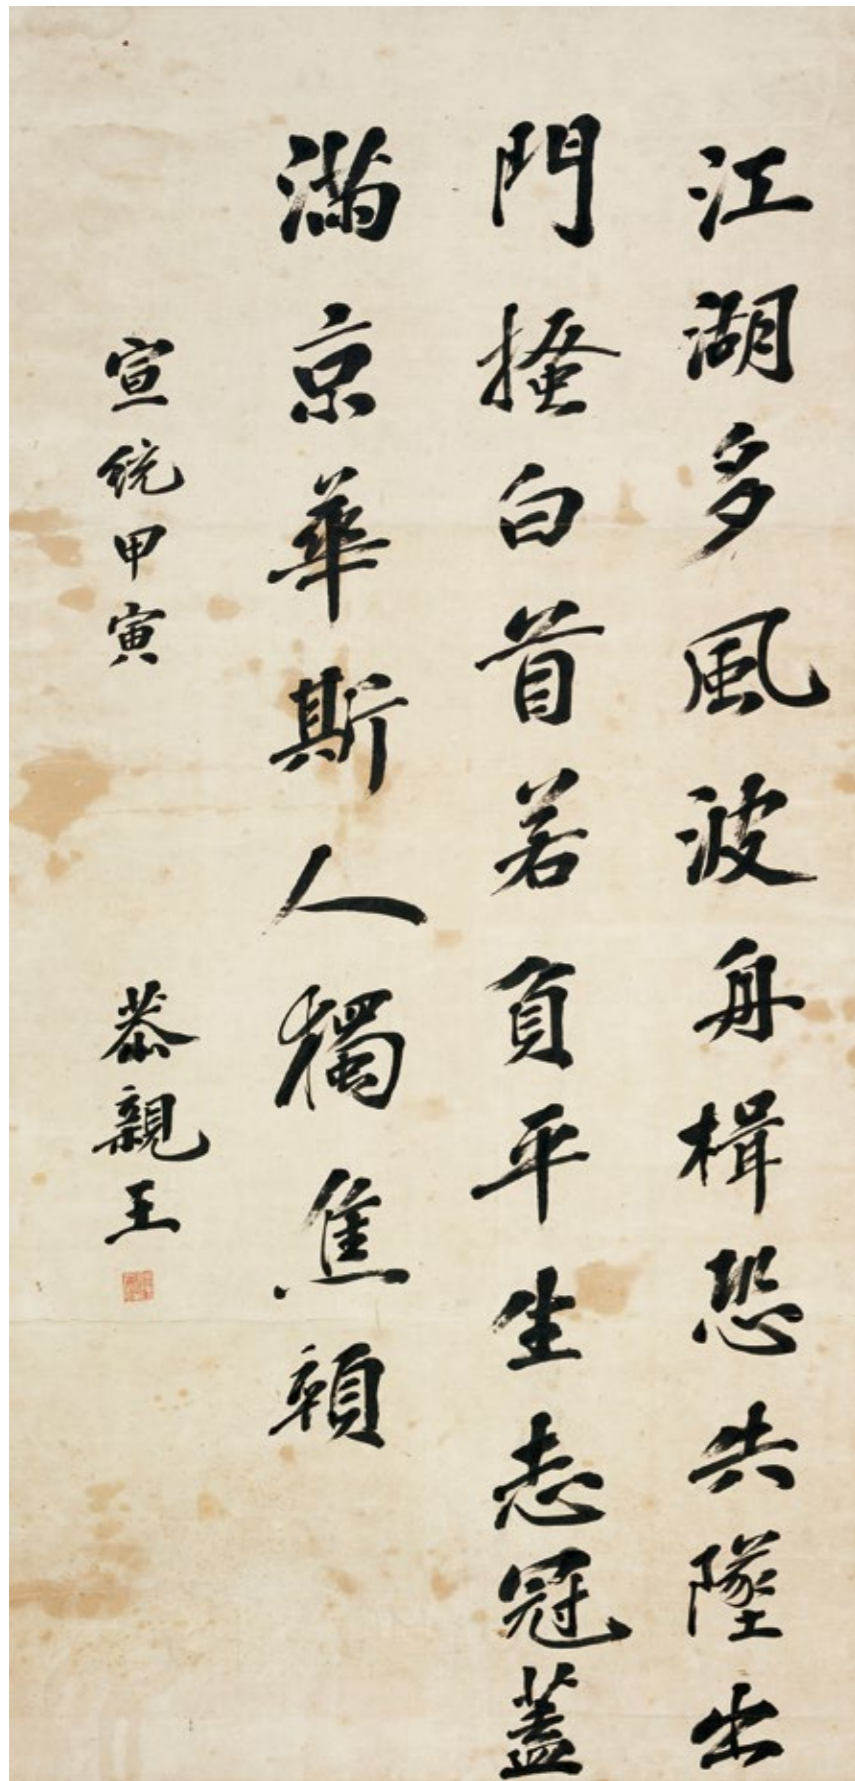 江湖多風波舟楫恐失墜出
門搔白首若負平生志冠蓋
滿京華斯人獨焦顇
宣統甲寅 恭親王